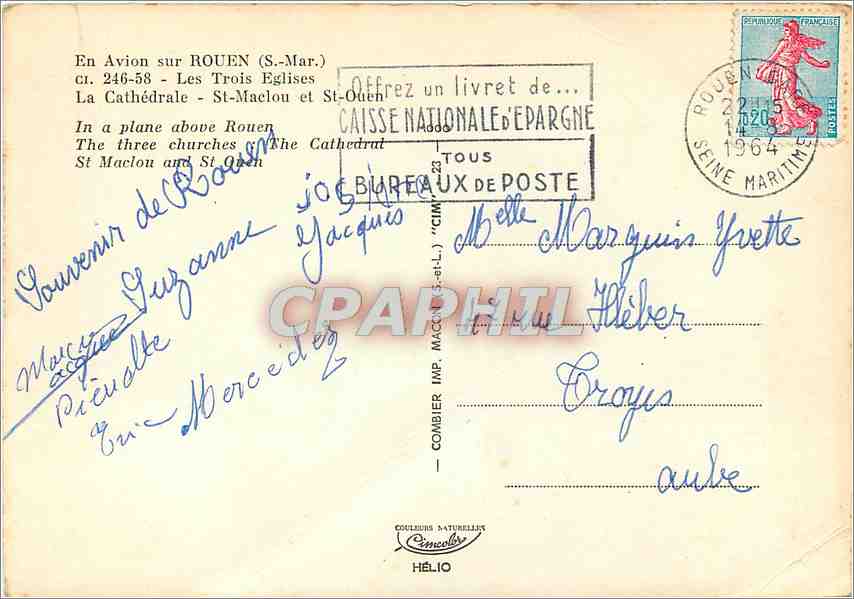 En Avion sur ROUEN (S.-Mar.)
CI. 246-58 - Les Trois Eglises
La Cathédrale - St-Maclou et St-Ouen
In a plane above Rouen
The three churches - The Cathedral
St Maclou and St Ouen
Offrez un livret de...
CAISSE NATIONALE D'EPARGNE
TOUS
BUREAUX DE POSTE
REPUBLIQUE FRANÇAISE
0,20
POSTES
ROUEN
22H15
14 - 8
1964
SEINE MARITIME
Souvenir de Rouen
Suzanne
Jacques
Eric Mercédez
Melle Marquis Yvette
47 rue Kléber
Troyes
aube
— COMBIER IMP. MACON (S.-et-L.) "CIM" 23 —
CPAPHIL
COULEURS NATURELLES
Cimcolor
HÉLIO